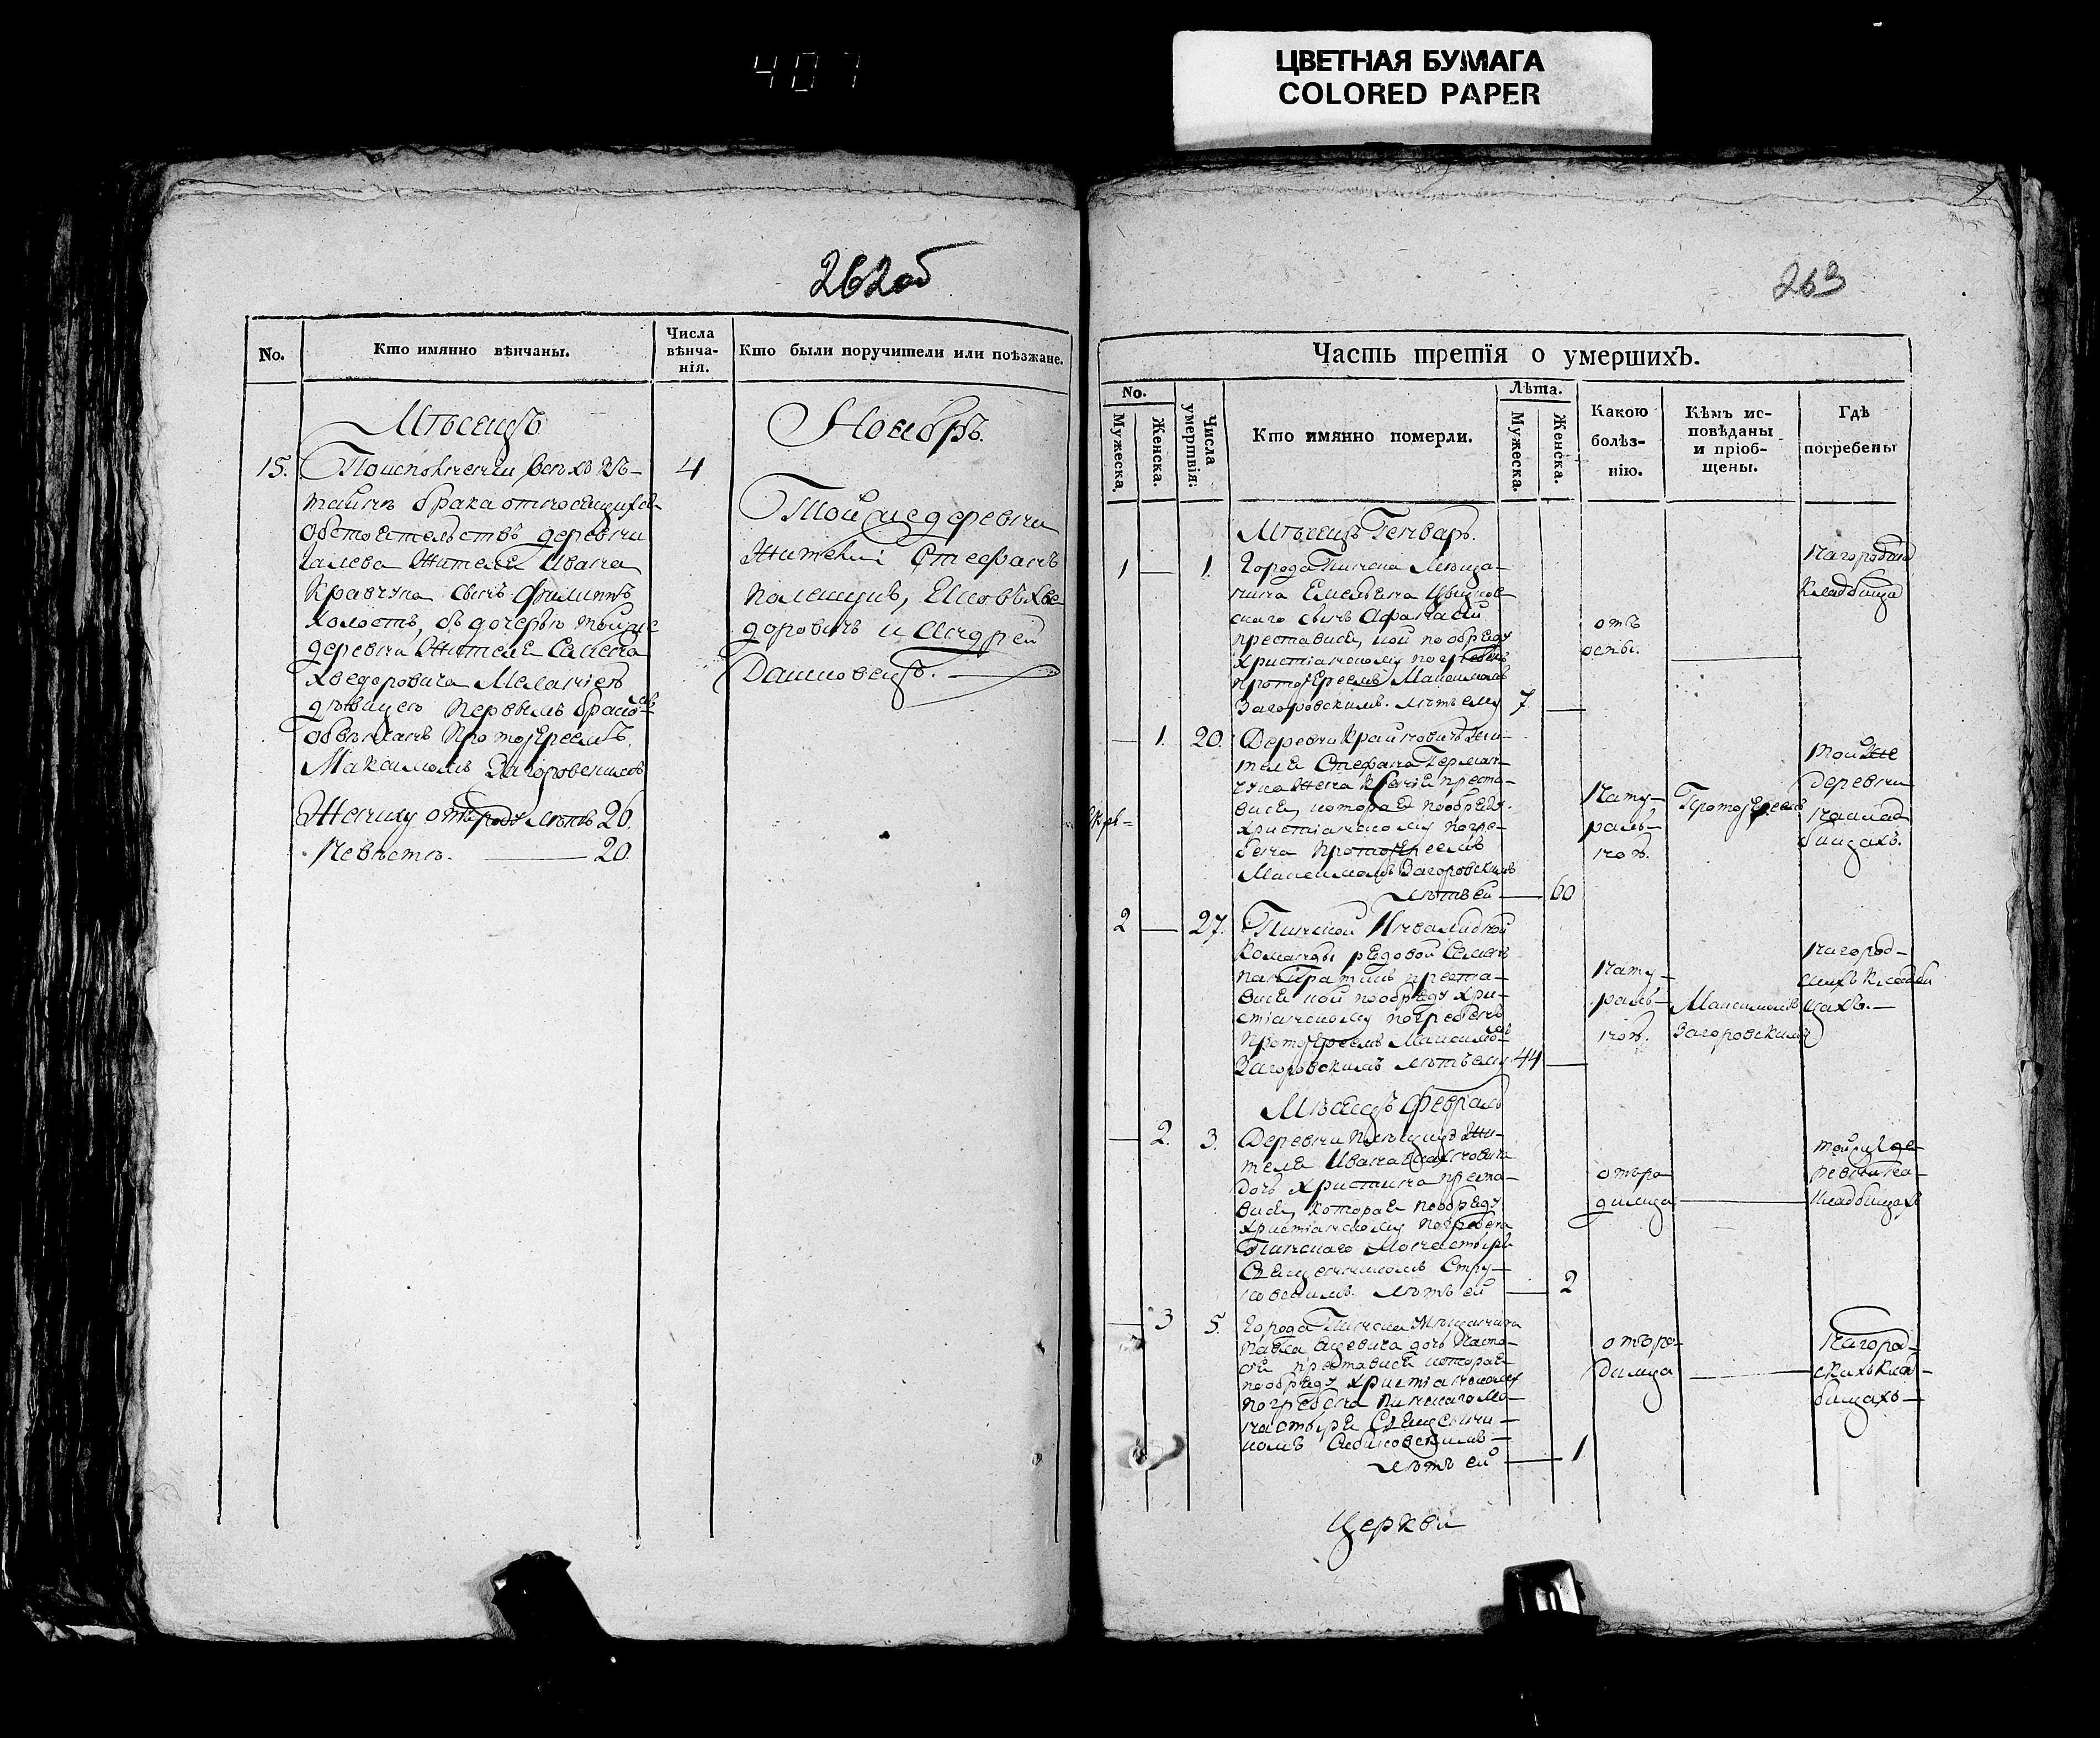 407
ЦВЕТНАЯ БУМАГА
COLORED PAPER
262об
No.
Кто имянно вѣнчаны.
Числа
вѣнча-
нія.
Кто были поручители или поѣзжане.
Мѣсецъ
Ноябръ.
15.
4
тайнѣ брака относящихся
обстоятельствъ деревни
Жителя Ивана
Кравчука сынъ Филиппъ
холостъ, съ дочерью тойже
деревни Жителя Семена
Хведоровича Меланіею
дѣвицею первымъ бракомъ
обвѣнчанъ Протоіереемъ
Максимомъ Загоровскимъ
Жениху отъ роду лѣтъ 26.
Невѣстѣ. 20.
Той же деревни
Жители Стефанъ
Полещукъ, Хве
доровичъ и Андрей
Дашковецъ.
263
Часть третія о умершихъ.
No.
Мужеска.
Женска.
Числа
умертвія:
Кто имянно померли.
Лѣта.
Мужеска.
Женска.
Какою
болѣз-
нію.
Кѣмъ ис-
повѣданы
и пріоб-
щены.
Гдѣ
погребены
Мѣсецъ Генваръ.
1
1.
Города Пинска Мѣща-
нина Емельяна
сынъ Афанасий
преставися, кой по обряду
христіанскому погребенъ
Протоіереемъ Максимомъ
Загоровскимъ. лѣтъ ему
7
отъ
оспы.
кладбища
1.
20.
Деревни Жи-
теля Стефана Герман-
чука Жена преста-
вися, которая по обряду
христіанскому погре-
бена Протоіереемъ
Максимомъ Загоровскимъ
лѣтъ ей
60
нату-
раль-
ной.
Протоіереемъ
той же
деревни
на клад
бищахъ.
2
27.
Пинской Инвалидной
Команды рядовой Семенъ
преста-
вися кой по обряду хри-
стіанскому погребенъ
Протоіереемъ Максимомъ
Загоровскимъ лѣтъ ему
44
нату-
раль-
ной.
Максимомъ
Загоровскимъ
на город-
скихъ кладби
щахъ.
Мѣсяцъ Февраль
2.
3.
Деревни Жи-
теля Ивана
дочь Христина преста-
вися, которая по обряду
христіанскому погребена
Пинского Монастыря
Священникомъ Стру-
ковскимъ. лѣтъ ей
2
отъ ро
димца
той же де-
ревни на
кладбищахъ
3
5.
Города Пинска Мѣщанина
Павла дочь Наста-
сія преставися которая
по обряду христіанскому
погребена Пинского Мо-
настыря Священни-
комъ
лѣтъ ей
1
отъ ро-
димца
На горо-
скихъ клад-
бищахъ
Церкви